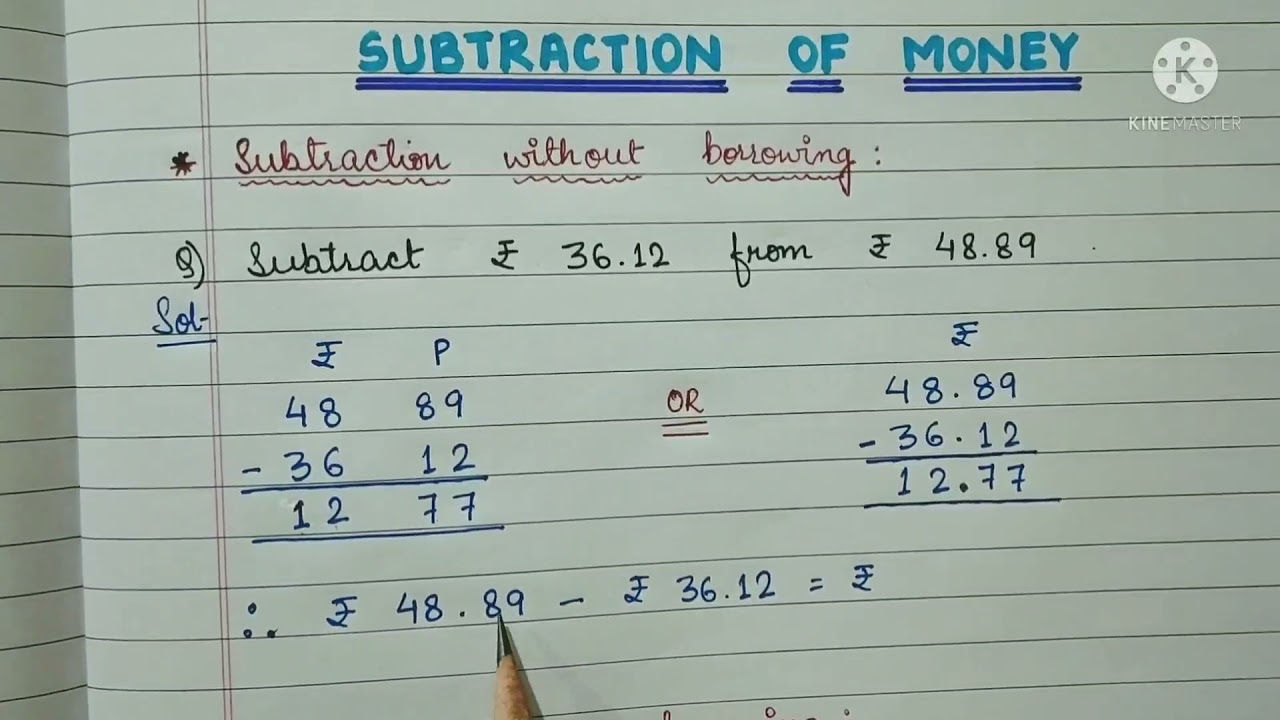 SUBTRACTION OF MONEY
KINEMASTER
* Subtraction without borrowing :
Q) Subtract ₹ 36.12 from ₹ 48.89
Sol-
₹ P
48 89
- 36 12
12 77
OR
₹
48.89
- 36.12
12.77
∴ ₹ 48.89 - ₹ 36.12 = ₹